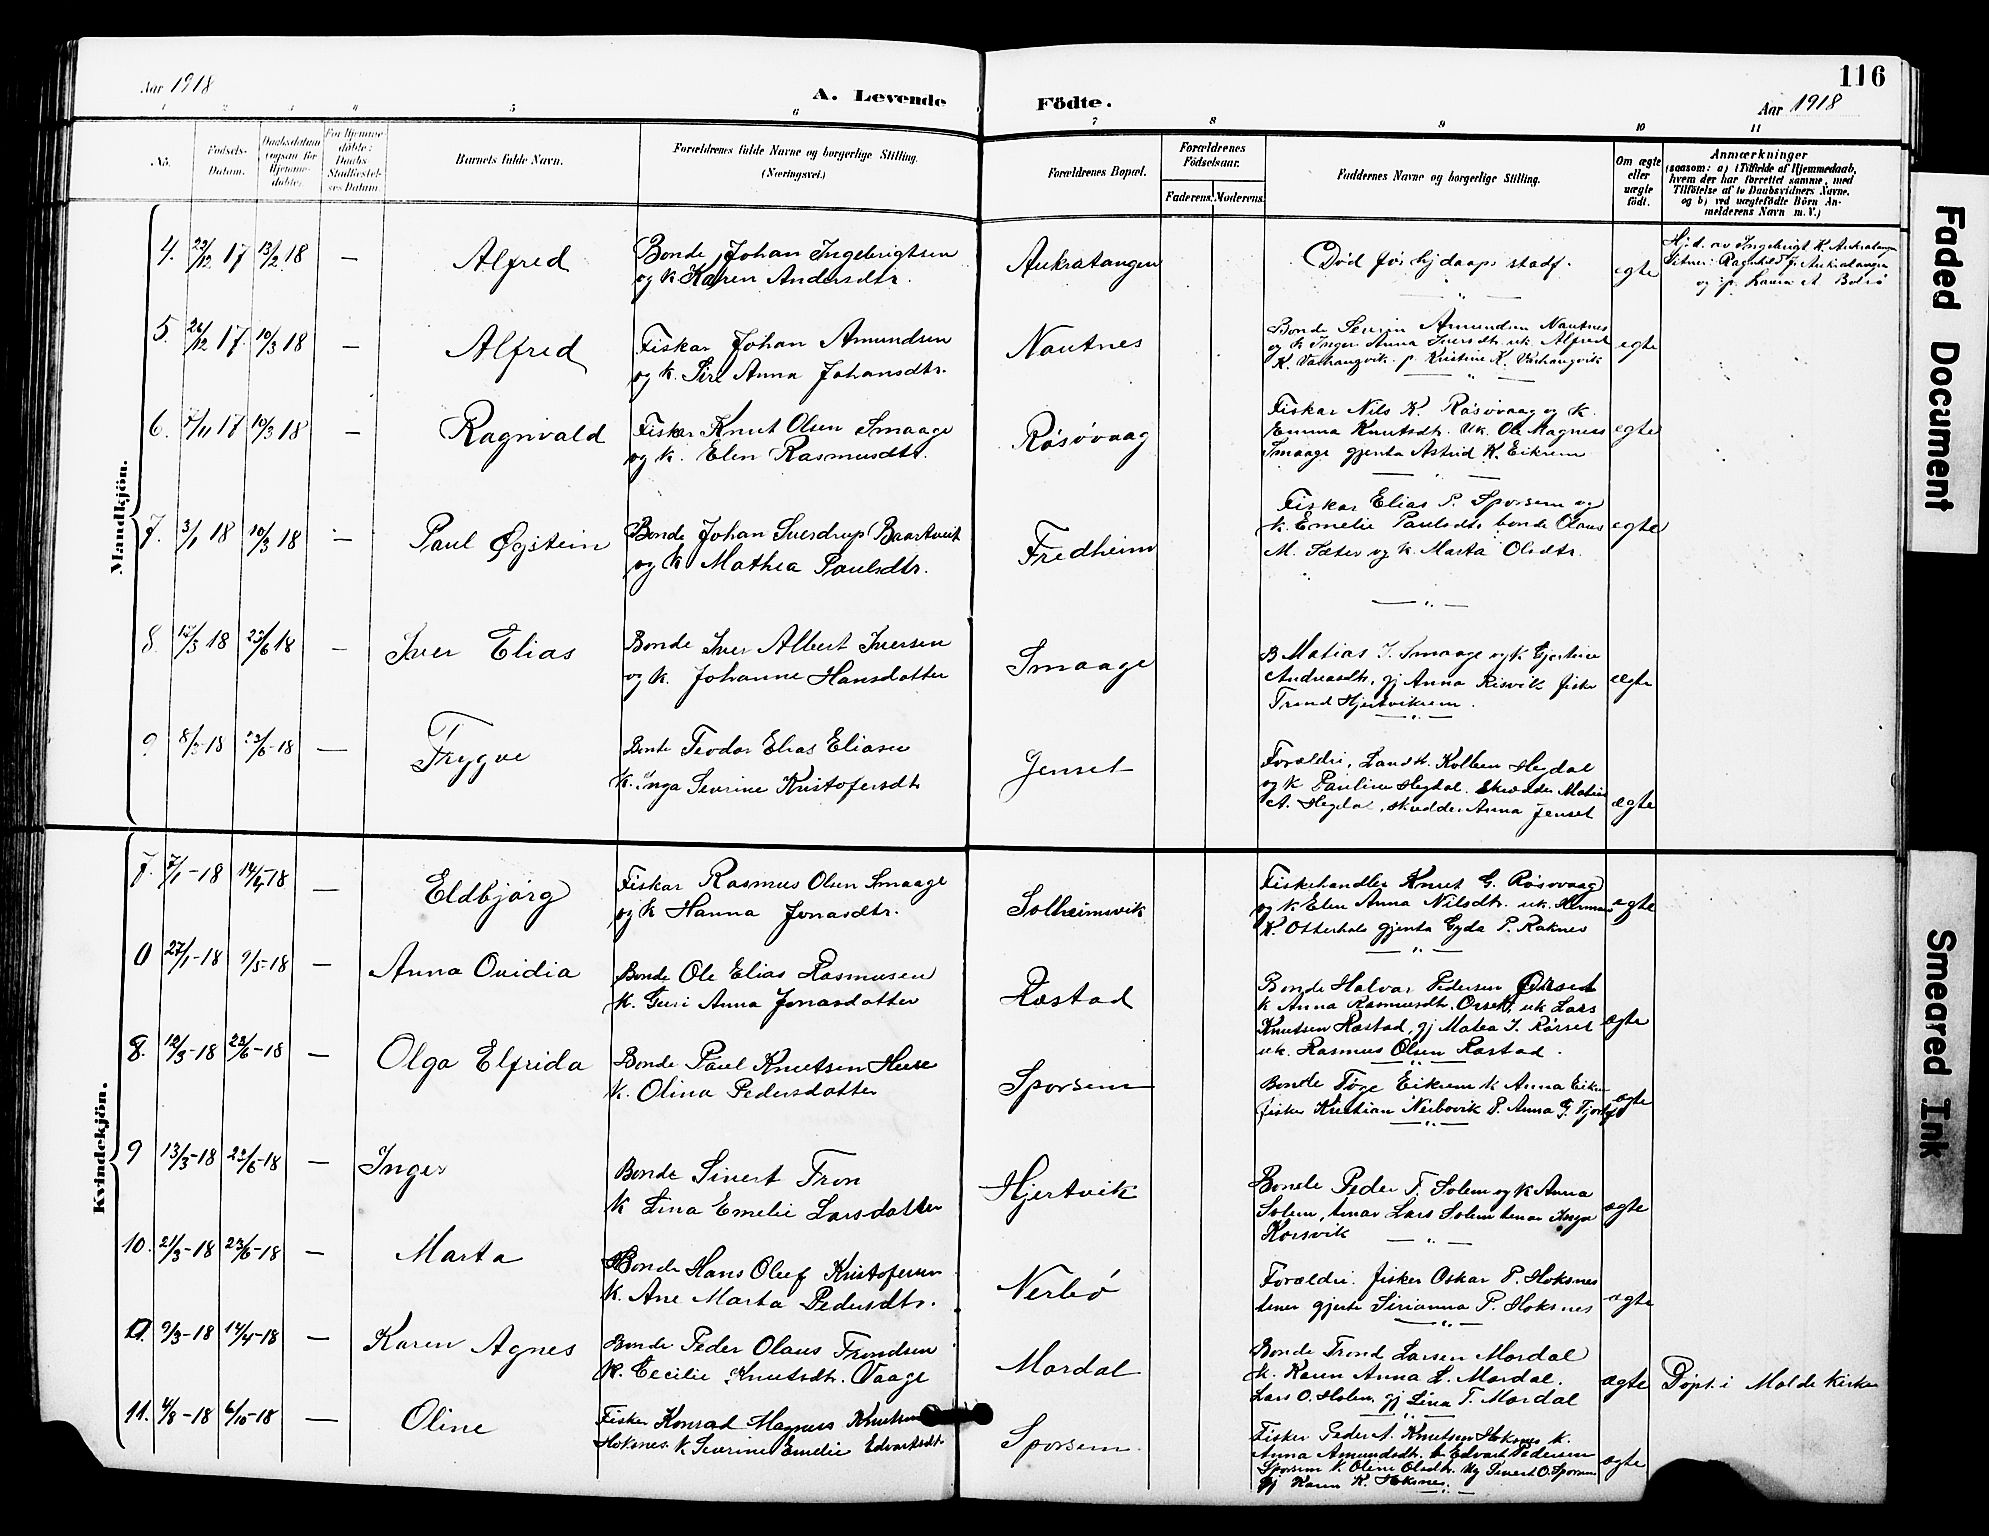 Aar 1918
A. Levende
Födte.
116
Aar 1918
1 2 3 4 5 6 7 8 9 10 11
No.
Födsels-
Datum.
Daabsdatum
(ogsaa for
Hjemme-
døbte).
For Hjemme-
døbte:
Daabs-
Stadfæstel-
ses Datum.
Barnets fulde Navn.
Forældrenes fulde Navne og borgerlige Stilling.
(Næringsvei.)
Forældrenes Bopæl.
Forældrenes
Födselsaar.
Faderens. Moderens.
Faddernes Navne og borgerlige Stilling.
Om ægte
eller
uægte
födt.
Anmærkninger
(saasom: a) i Tilfælde af Hjemmedaab,
hvem der har forrettet samme, med
Tilföielse af to Daabsvidners Navne,
og b) ved uægtefödte Börn An-
melderens Navn m. V.)
Mandkjön.
4. 22/12 17 13/2 18 — Alfred
Bonde Johan Ingebrigtsen
og k Karen Andersdtr.
Aukratangen
Død før hj daaps stadf.
egte
Hj.d. av Ingebrigt K. Aukratangen
Vitner: Ragnhild J. Aukratangen
og p. Laura A. Bolsø
5. 26/12 17. 10/3 18 — Alfred
Fiskar Johan Amundsen
og k. Siri Anna Johansdtr.
Nautnes
Bonde Severin Amundsen Nautnes
og k Inger Anna Iversdtr uk. Alfred
K. Varhaugvik. p. Kristine K. Varhaugvik
egte
6. 7/11 17 10/3 18 — Ragnvald
Fisker Knut Olsen Smaage
og k. Elen Rasmusdtr.
Røsøvaag
Fiskar Nils K. Røsøvaag og k.
Emma Knutsdtr. Uk. Ole Magnus
Smaage gjenta Astrid K. Eikrem
egte
7. 3/1 18 10/3 18 — Paul Øystein
Bonde Johan Sverdrup Baartveit
og k Mathea Paulsdtr.
Fredheim
Fiskar Elias P. Sporsem og
k. Emelie Paulsdtr bonde Olaus
M. Sæter og k. Marta Olsdtr.
egte
8. 12/3 18 23/6 18 — Iver Elias
Bonde Iver Albert Iversen
og k. Johanne Hansdatter
Smaage
B Matias I. Smaage og k Gjertine
Andreasdtr, gj Anna Risvik fisker
Trond Hjertvikrem.
ægte
9 8/5-18 23/6-18 — Trygve
Bonde Teodor Elias Eliasen
k. Inga Severine Kristofersdtr
Jenset
Forældre, Landh. Kolbein Hegdal
og k Pauline Hegdal. Skrædder Matias
A. Hegdal, skrædder Anna Jenset
ægte
Kvindekjön.
7. 7/1-18 14/4-18 — Eldbjørg
Fiskar Rasmus Olsen Smaage
og k Hanna Jonasdtr.
Solheimsvik
Fiskehandler Knut G. Røsøvaag
og k Elen Anna Nilsdtr. uk. Herman
K. Otterhals gjenta Gyda P. Raknes
egte
0 27/1-18 9/5-18 — Anna Ovidia
Bonde Ole Elias Rasmusen
k. Guri Anna Jonasdatter
Rastad
Bonde Halvar Pedersen Orset
k Anna Rasmusdtr. Orset, uk Lars
Knutsen Rastad, gj Matea I. Rørset
uk. Rasmus Olsen Rastad.
ægte
8. 12/3-18 23/6-18 — Olga Elfrida
Bonde Paul Knutsen Huse
k. Olina Pedersdatter
Sporsem
Bonde Tøge Eikrem k Anna Eikre
fisker Kristian Nerbøvik P. Anna G.
ægte
9 13/3-18 23/6-18 — Inger
Bonde Sivert Tron
k Lina Emelie Larsdatter
Hjertvik
Bonde Peder T. Solem og k Anna
Solem, tenar Lars Solem tenar Inga
Korsvik
ægte
10. 21/3-18 23/6-18 — Marta
Bonde Hans Oluf Kristofersen
k. Ane Marta Pedersdtr.
Nerbø
Forældre. fisker Oskar P. Hoksnes
tener gjente Sirianna P. Hoksnes
ægte
11. 9/3-18 14/4-18 — Karen Agnes
Bonde Peder Olaus Trondsen
k. Cecilie Knutsdtr. Vaage
Mordal
Bonde Trond Larsen Mordal
k. Karen Anna L. Mordal.
Lars O. Holen, gj Lina T. Mordal
ægte
Døpt i Molde kirke
11. 4/8-18 6/10-18 — Oline
Fisker Konrad Magnus Knutsen
Hoksnes k Severine Emelie Edvartsdtr
Sporsem.
Fisker Peder A. Knutsen Hoksnes k.
Anna Amundsdtr. b Edvart Pedersen
Sporsem k Oline Olsdtr. Ug Sivert O. Sporsem
Gj Karen K. Hoksnes.
ægte
Faded Document
Smeared Ink